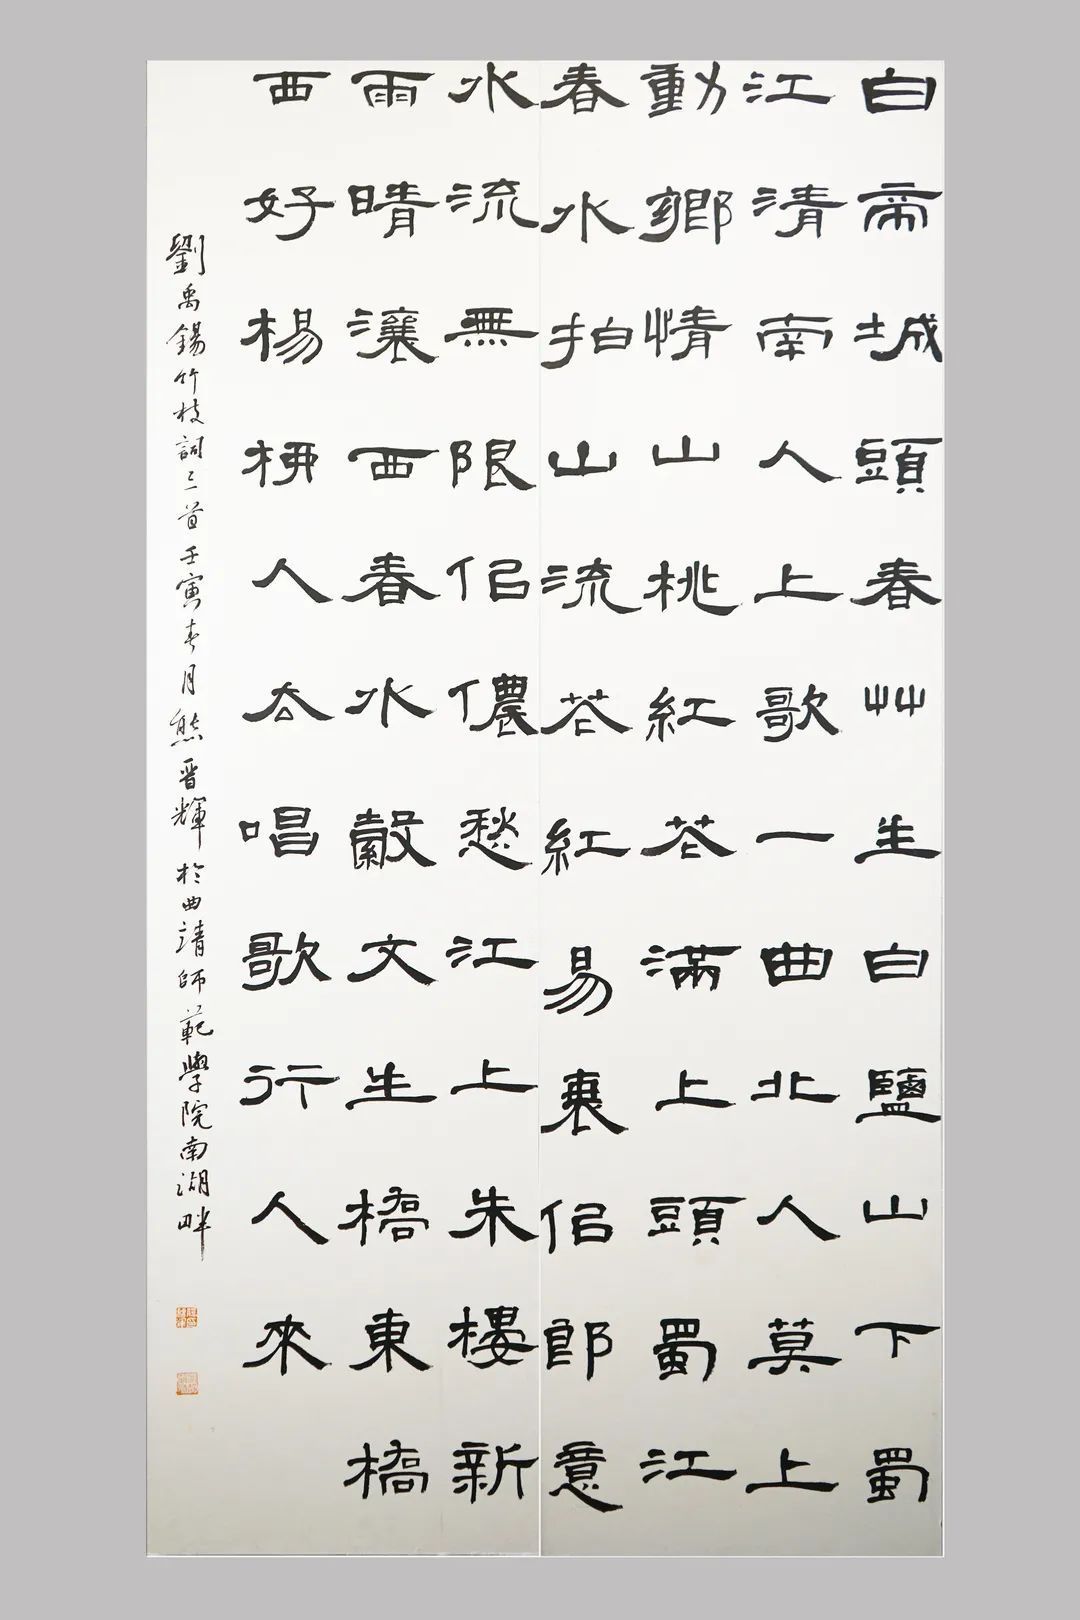 白帝城頭春艸生白鹽山下蜀
江清南人上歌一曲北人莫上
動鄉情山桃紅花滿上頭蜀江
春水拍山流花紅易衰佀郎意
水流無限佀儂愁江上朱樓新
雨晴瀼西春水縠文生橋東橋
西好楊柳人厺唱歌行人來
劉禹錫竹枝詞三首壬寅春月熊晋輝於曲靖師範學院南湖畔